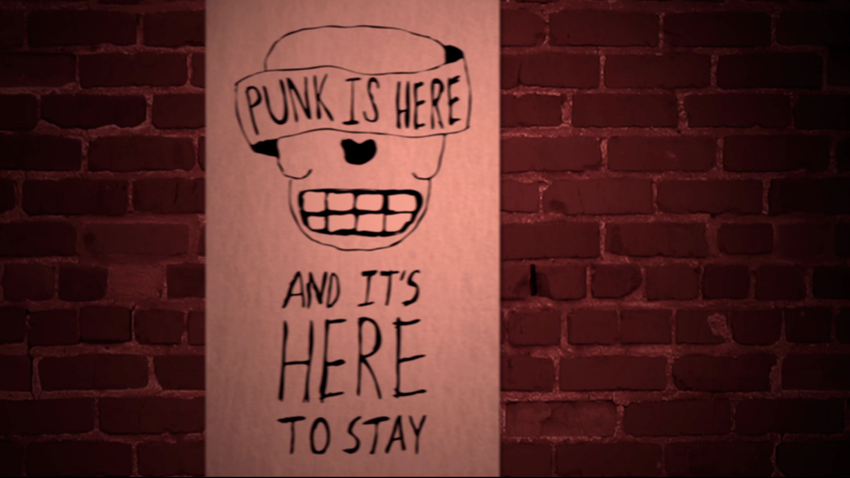 PUNK IS HERE
AND IT'S
HERE
TO STAY